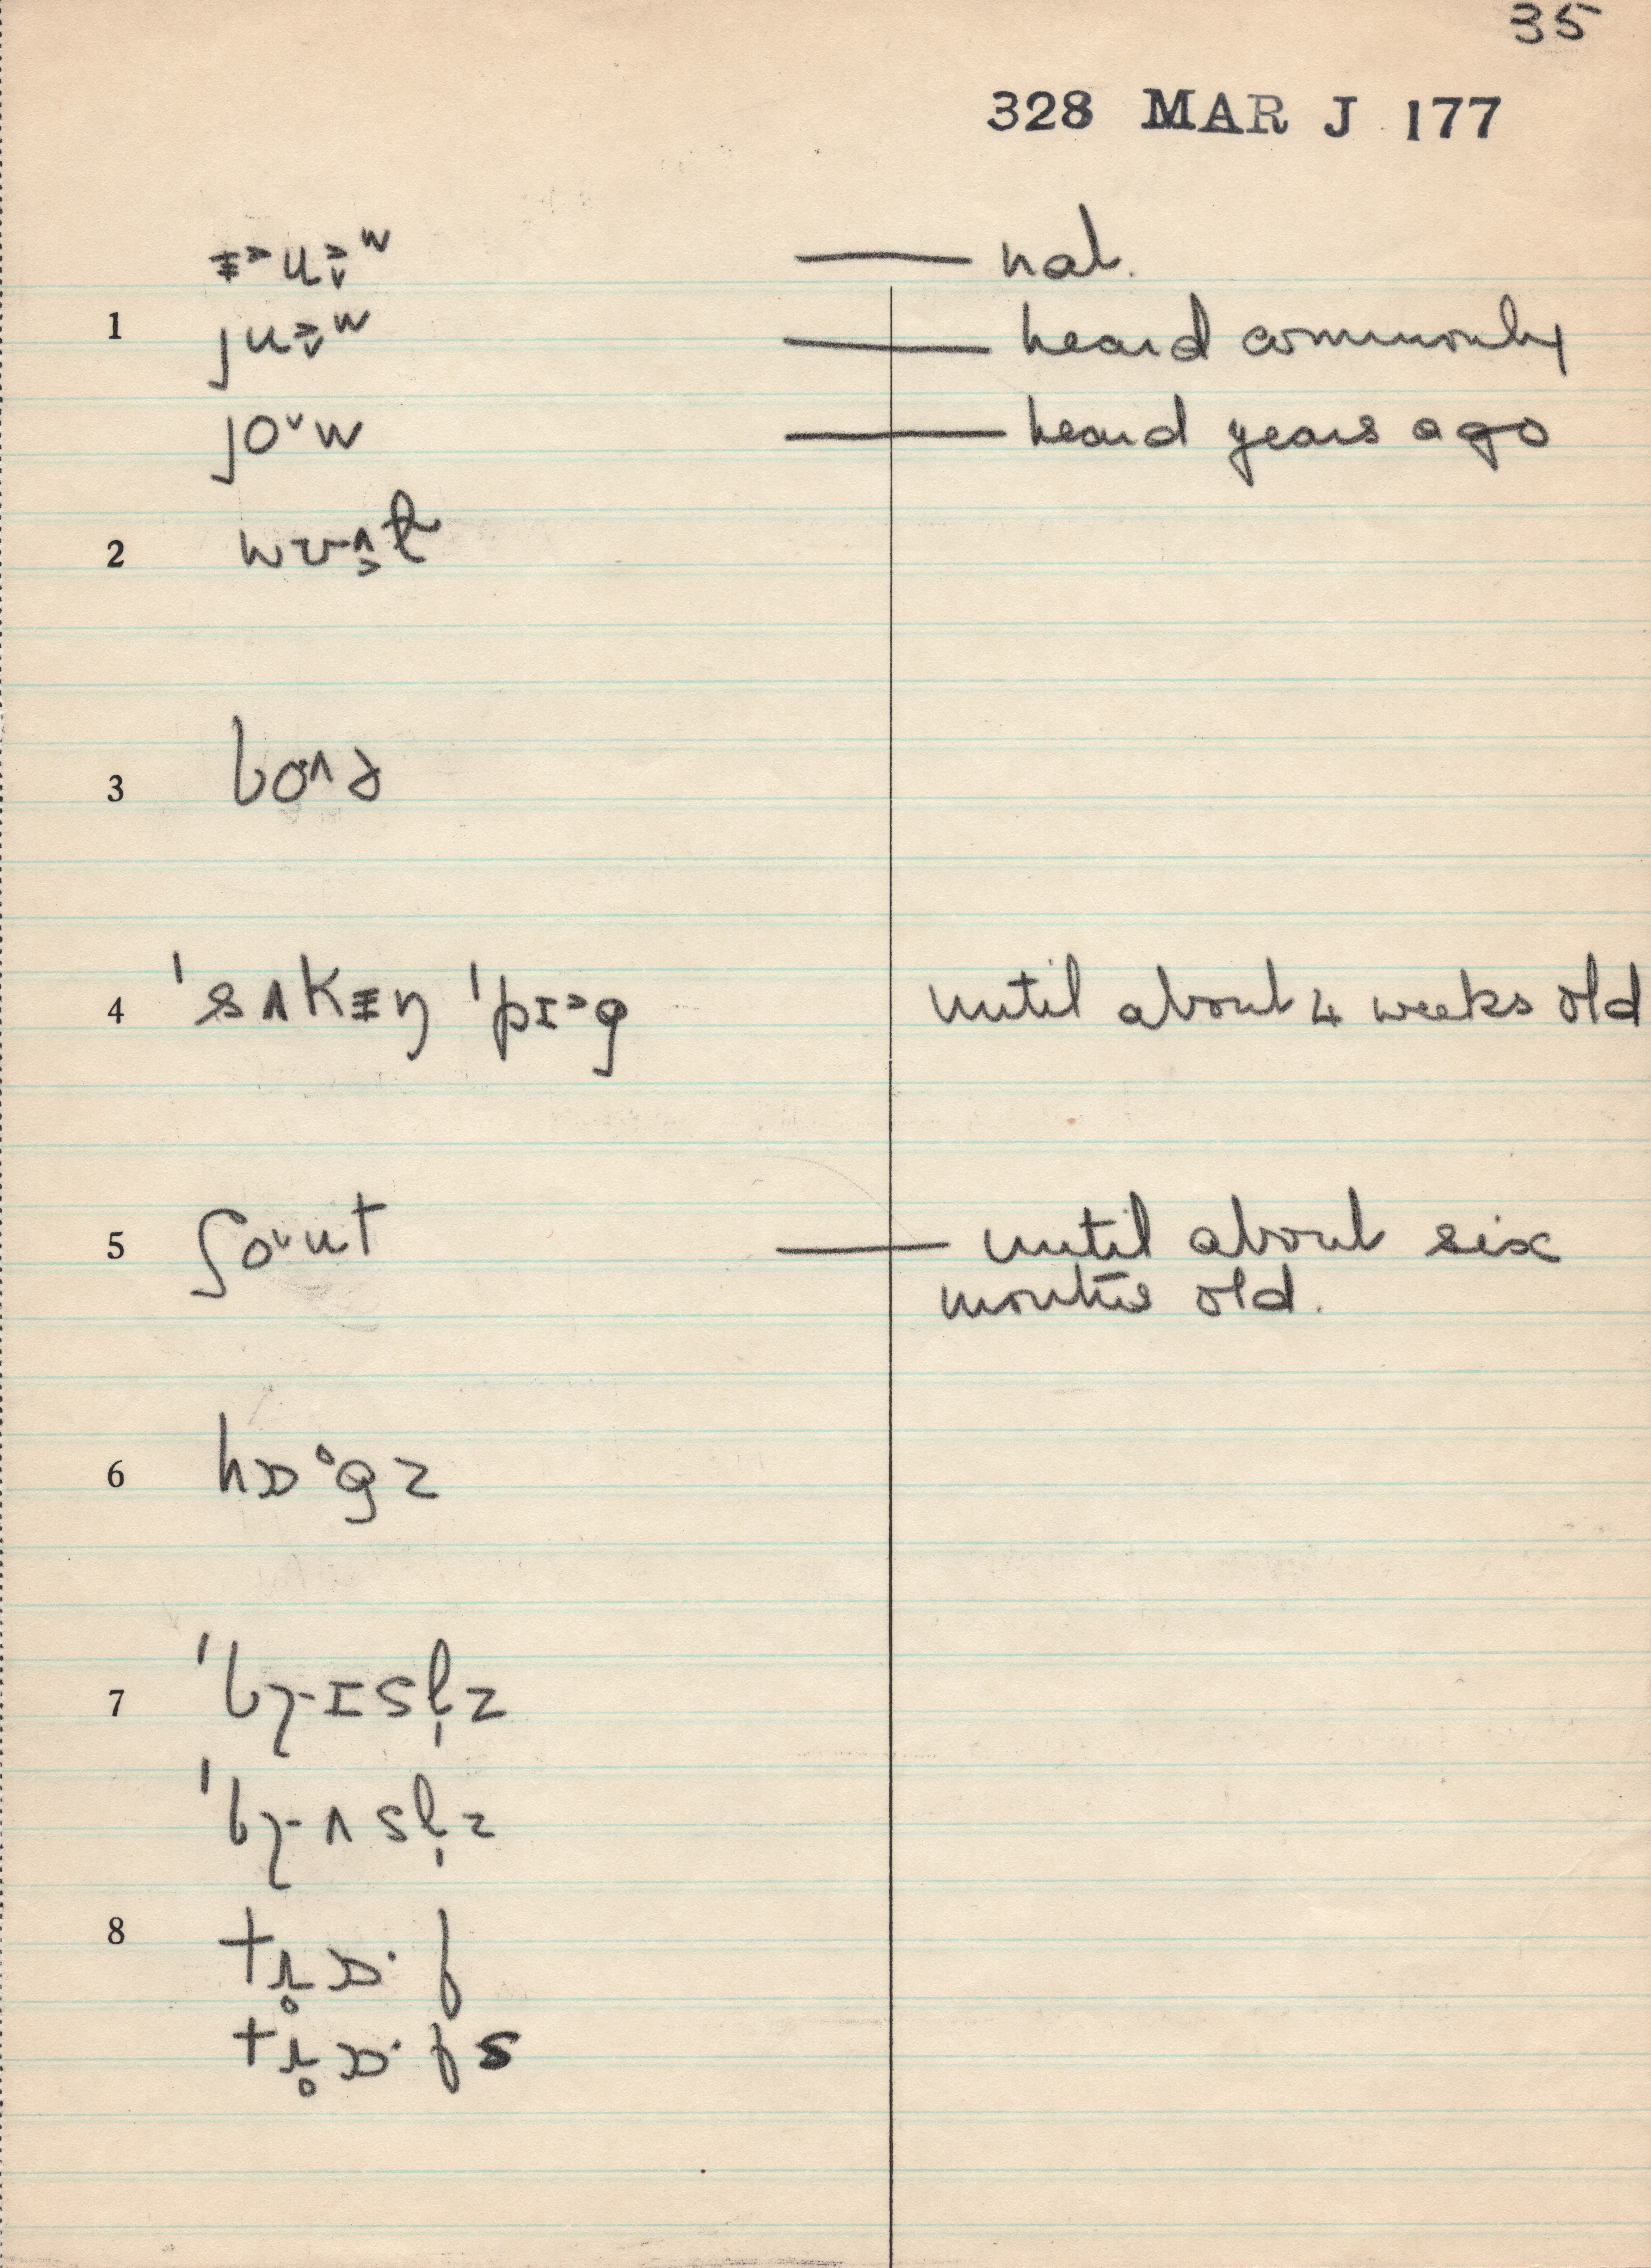 35
328 MAR J 177
ᵻ˃u˃̬ʷ — nat.
1 ju˃̬ʷ — heard commonly
joˇw — heard years ago
2 wʊʌ̜t
3 bo^ɹ
4 ˈsʌkᵻŋ ˈpɪ˃g until about 4 weeks old
5 ʃoˇut — until about six
months old.
6 hɒ°gz
7 ˈbɹɪsl̩z
ˈbɹʌsl̩z
8 tɹ̥ɒ·f
tɹ̥ɒ·fs